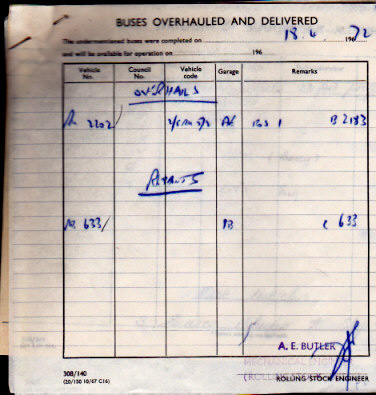 BUSES OVERHAULED AND DELIVERED
The undermentioned buses were completed on 18.4 1972
and will be available for operation on 196
Vehicle No. Council No. Vehicle code Garage Remarks
OVERHAULS
2202 B 2183
REPAINTS
633 PB C 633
A. E. BUTLER
MECHANICAL ENGINEER
(ROLLING STOCK)
ROLLING STOCK ENGINEER
308/140
(20/150 10/67 C16)